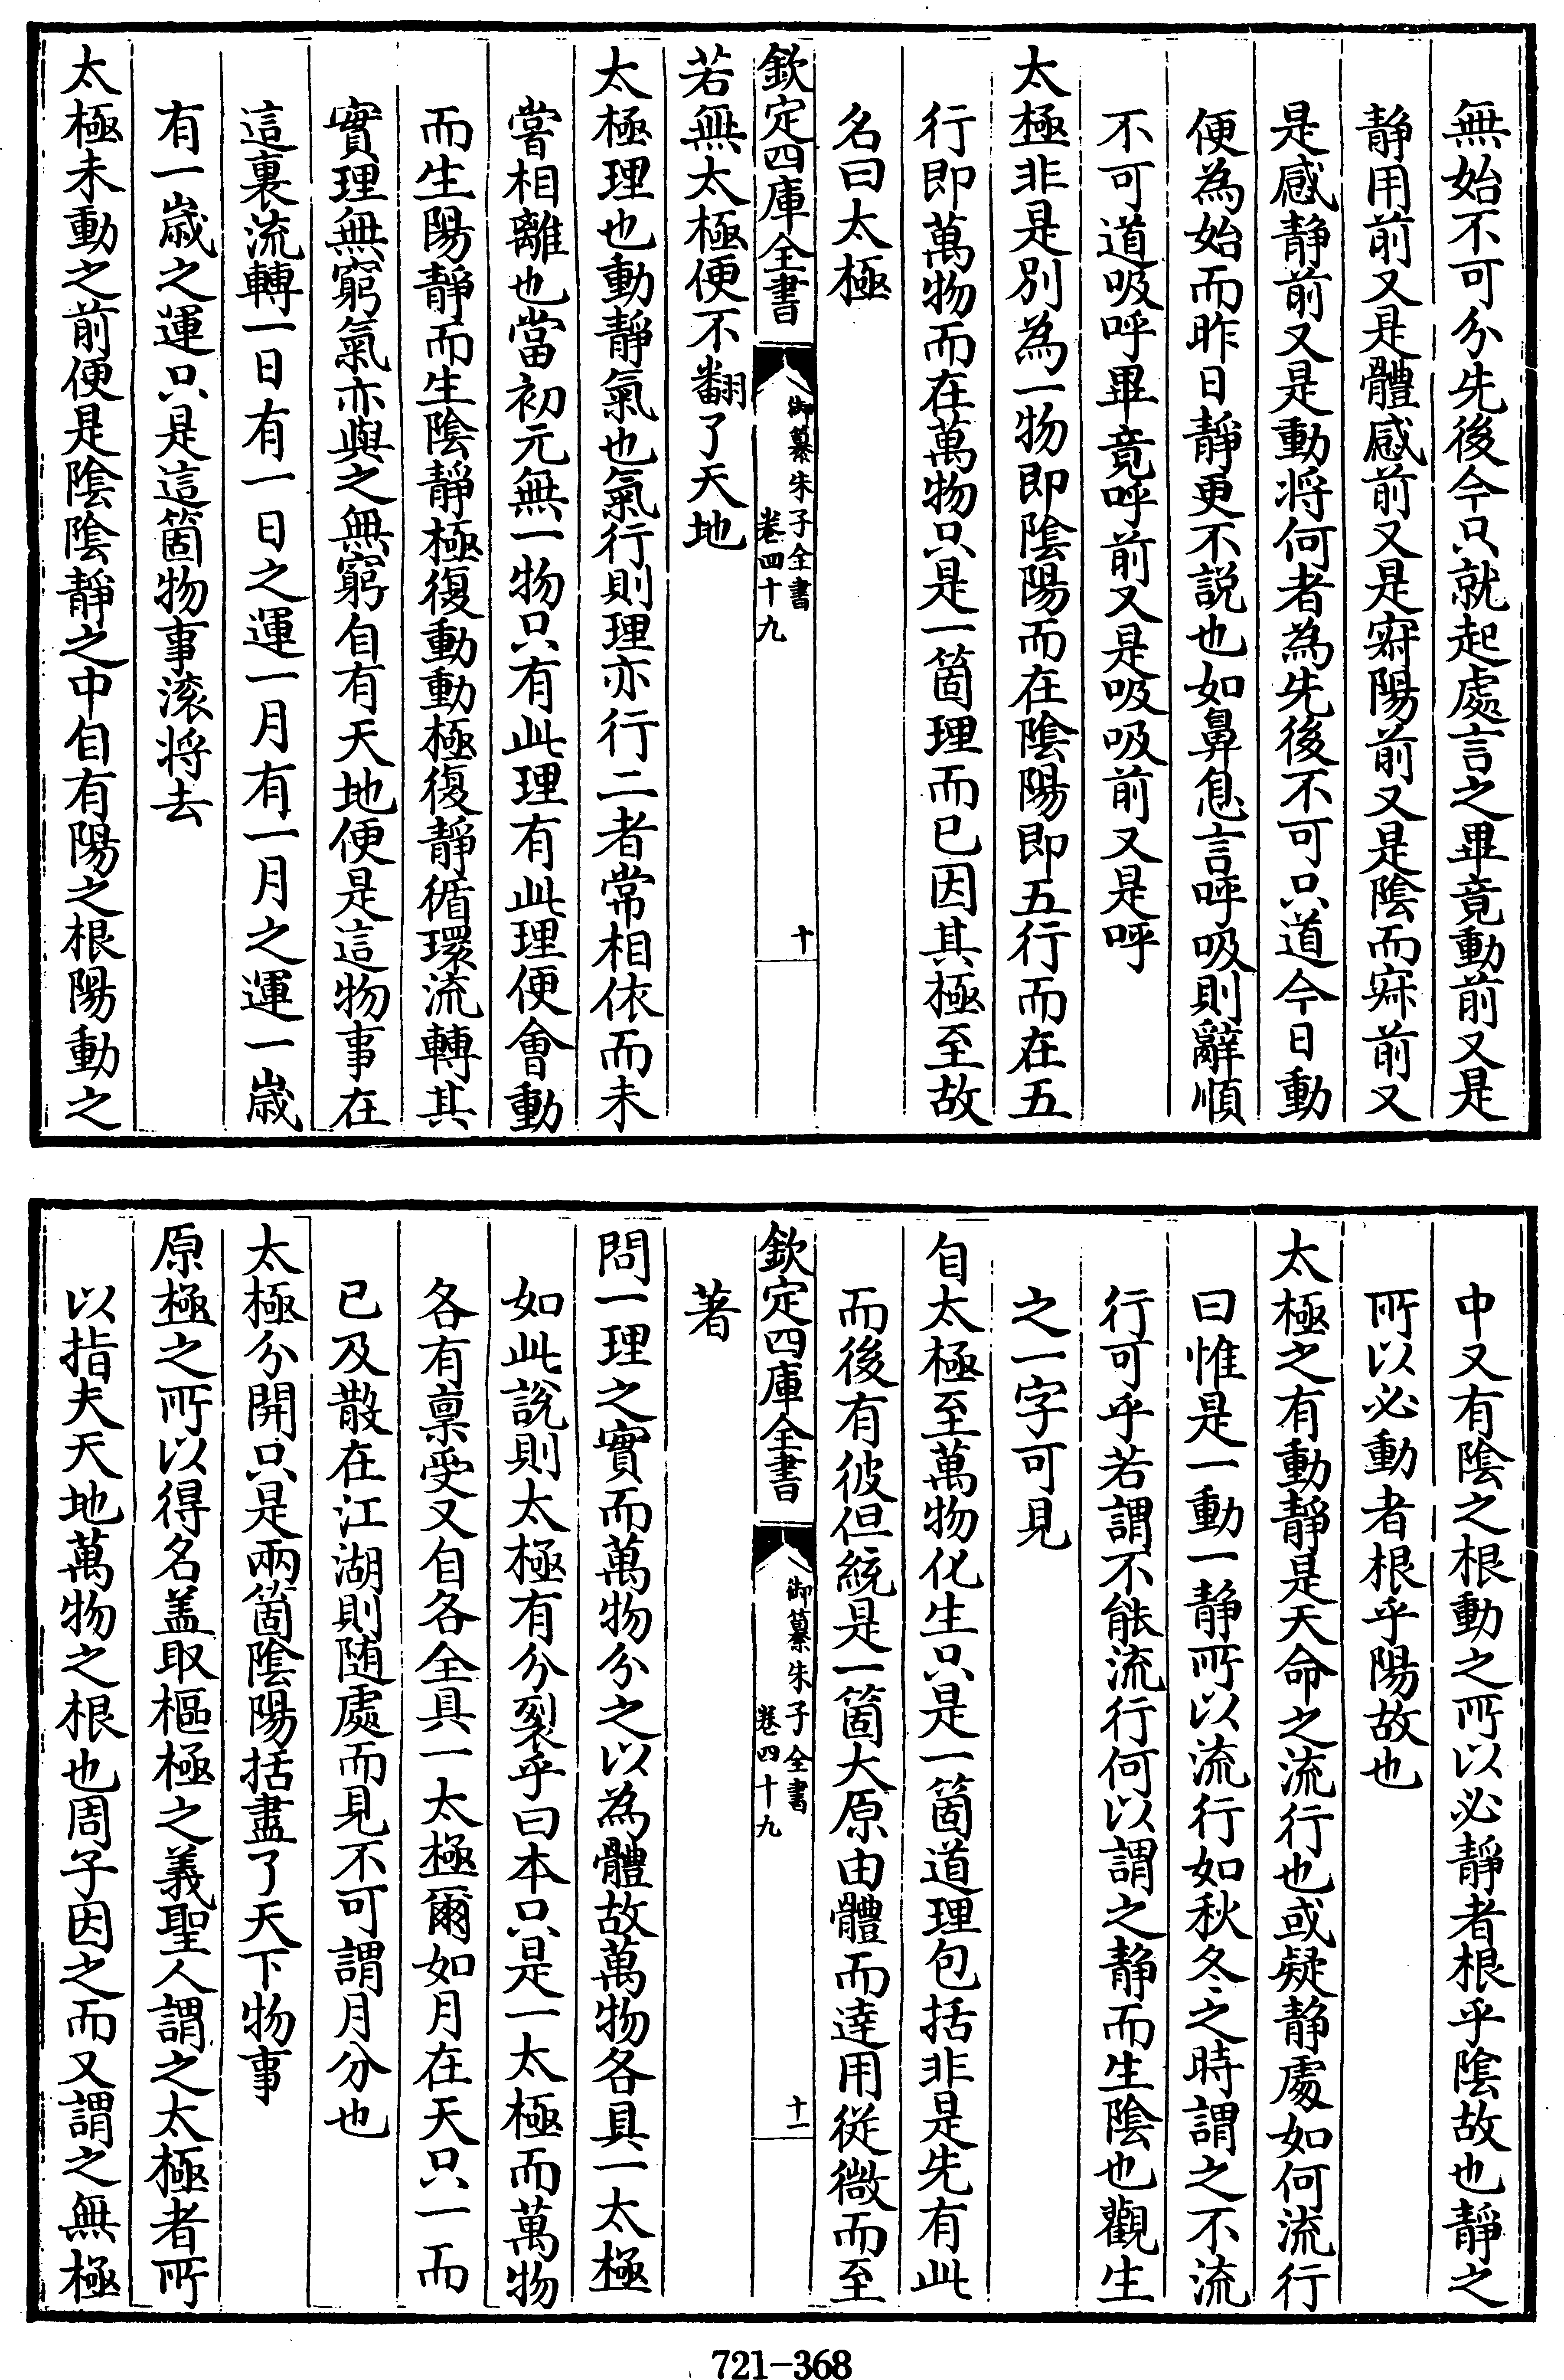 無始不可分先後今只就起處言之畢竟動前又是
静用前又是體感前又是寂陽前又是陰而寂前又
是感静前又是動将何者為先後不可只道今日動
便為始而昨日静更不說也如鼻息言呼吸則辭順
不可道吸呼畢竟呼前又是吸吸前又是呼
太極非是別為一物即陰陽而在陰陽即五行而在五
行即萬物而在萬物只是一箇理而已因其極至故
名曰太極
欽定四庫全書
御纂朱子全書
卷四十九
十
若無太極便不翻了天地
太極理也動靜氣也氣行則理亦行二者常相依而未
嘗相離也當初元無一物只有此理有此理便會動
而生陽靜而生陰靜極復動動極復靜循環流轉其
實理無窮氣亦與之無窮自有天地便是這物事在
這裏流轉一日有一日之運一月有一月之運一歳
有一歳之運只是這箇物事滚将去
太極未動之前便是陰陰靜之中自有陽之根陽動之
中又有陰之根動之所以必靜者根乎陰故也靜之
所以必動者根乎陽故也
太極之有動靜是天命之流行也或疑静處如何流行
曰惟是一動一静所以流行如秋冬之時謂之不流
行可乎若謂不能流行何以謂之静而生陰也觀生
之一字可見
自太極至萬物化生只是一箇道理包括非是先有此
而後有彼但統是一箇大原由體而達用從微而至
欽定四庫全書
御纂朱子全書
卷四十九
十一
著
問一理之實而萬物分之以為體故萬物各具一太極
如此說則太極有分裂乎曰本只是一太極而萬物
各有禀受又自各全具一太極爾如月在天只一而
已及散在江湖則随處而見不可謂月分也
太極分開只是兩箇陰陽括盡了天下物事
原極之所以得名盖取樞極之義聖人謂之太極者所
以指夫天地萬物之根也周子因之而又謂之無極
721-368